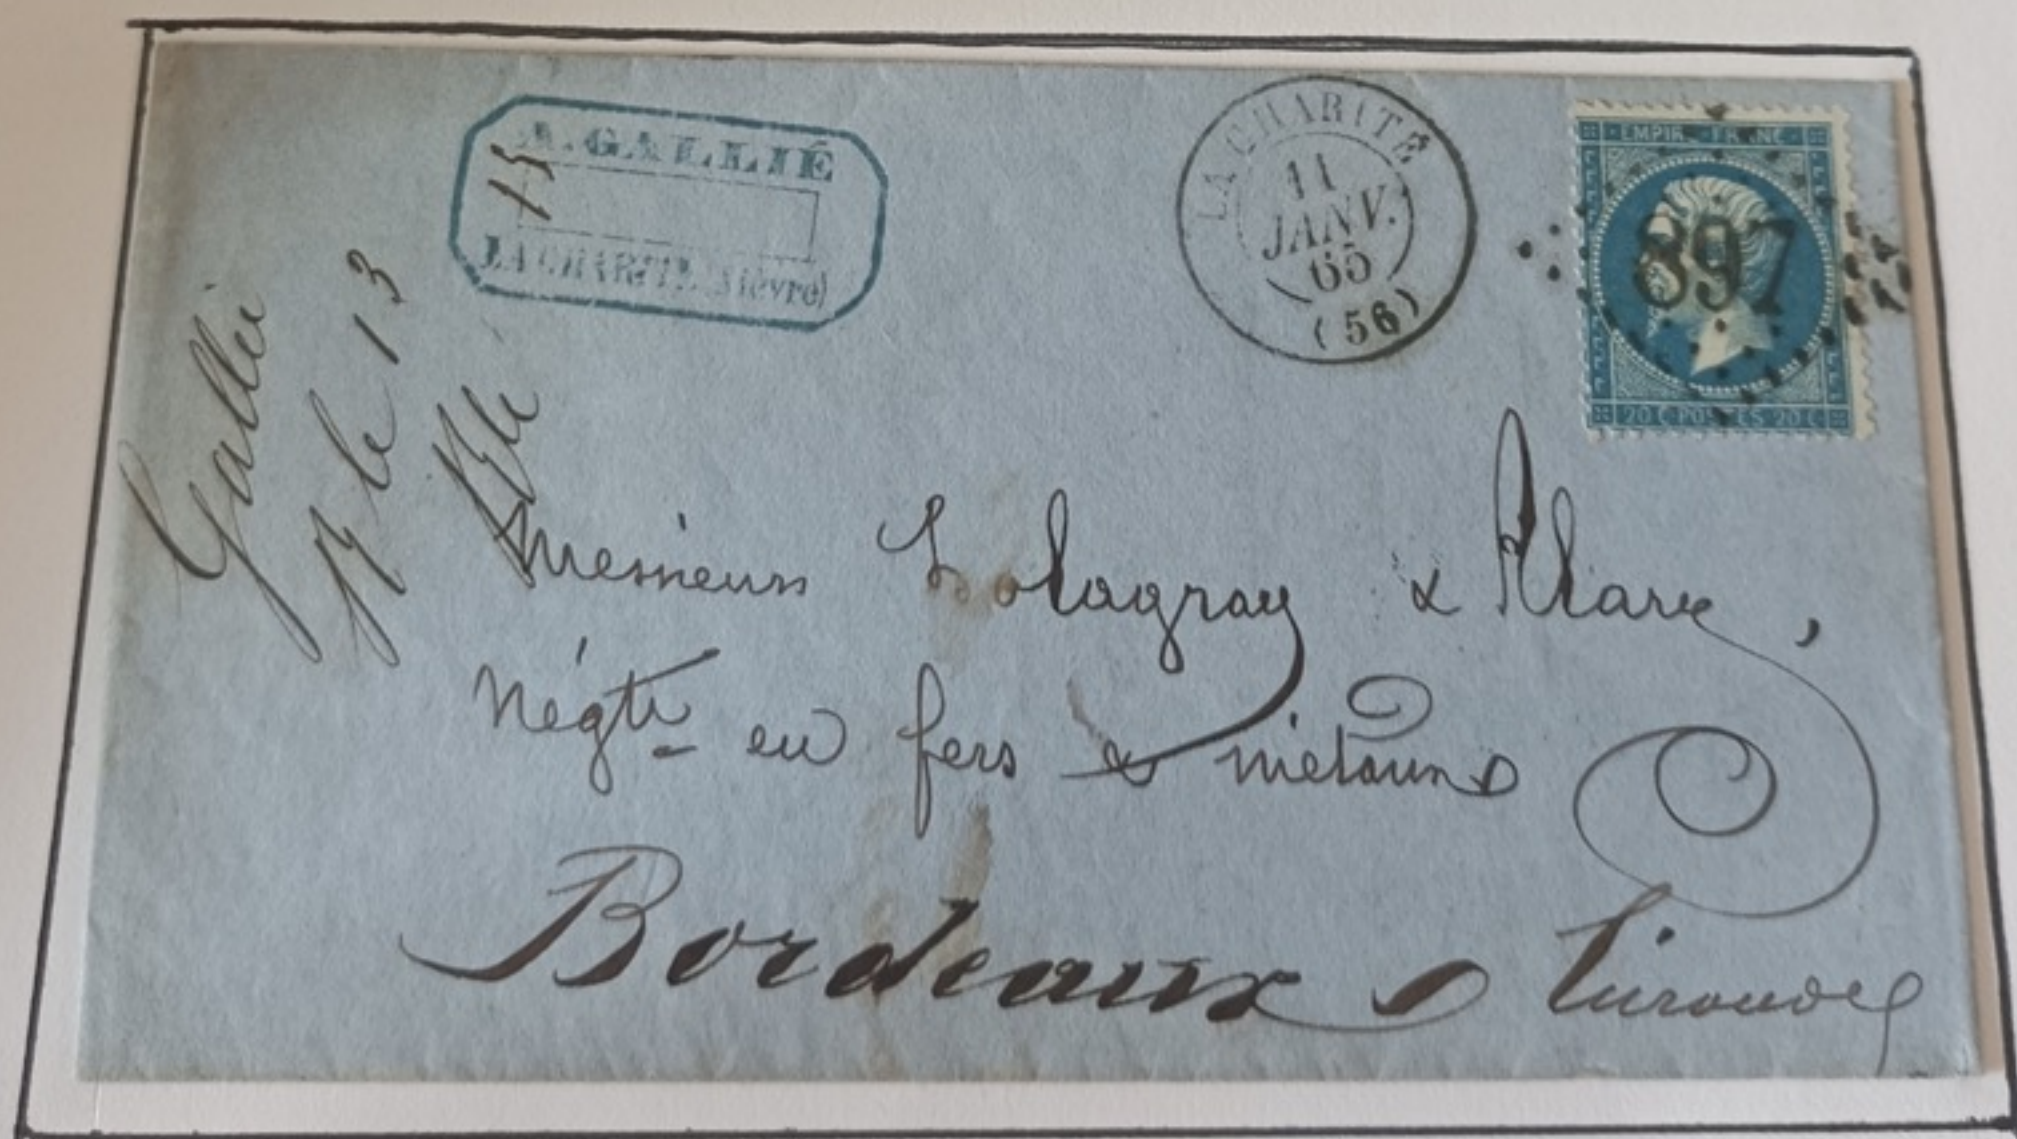 A. GALLIÉ
15
LA CHARITÉ (Nièvre)
LA CHARITÉ
11
JANV.
65
(56)
EMPIRE FRANC
897
20 C POSTES 20 C
Gallié
le 13
Messieurs &
Négts en fers & métaux
Bordeaux
Gironde